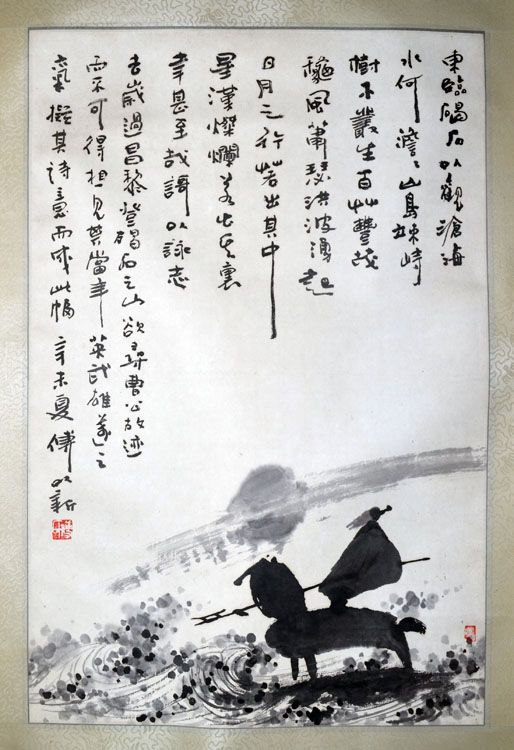 東臨碣石以觀滄海
水何澹〻山島竦峙
樹木叢生百艸豐茂
穐風蕭瑟洪波湧起
日月之行若出其中
星漢燦爛若出其裏
幸甚至哉謌以詠志
去歲過昌黎登碣石之山欲尋曹公故迹
而不可得想見其當年英武雄邁之
氣擬其詩意而成此幅辛未夏傅以新